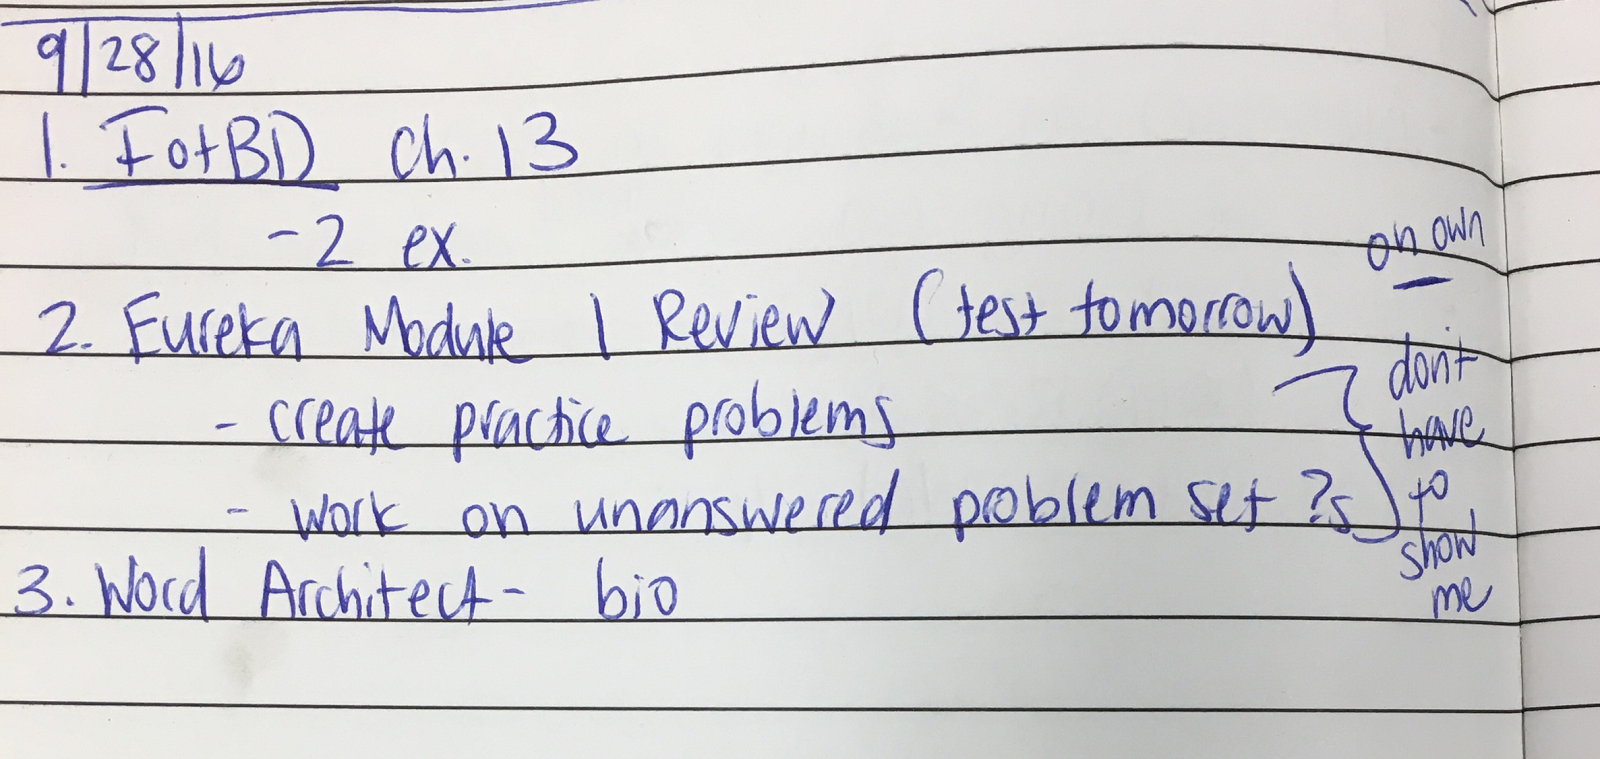 9/28/16
1. IotBD ch. 13
-2 ex.
2. Eureka Module 1 Review (test tomorrow)
- create practice problems
- work on unanswered problem set ?s
3. Word Architect - bio
on own
don't
have
to
show
me